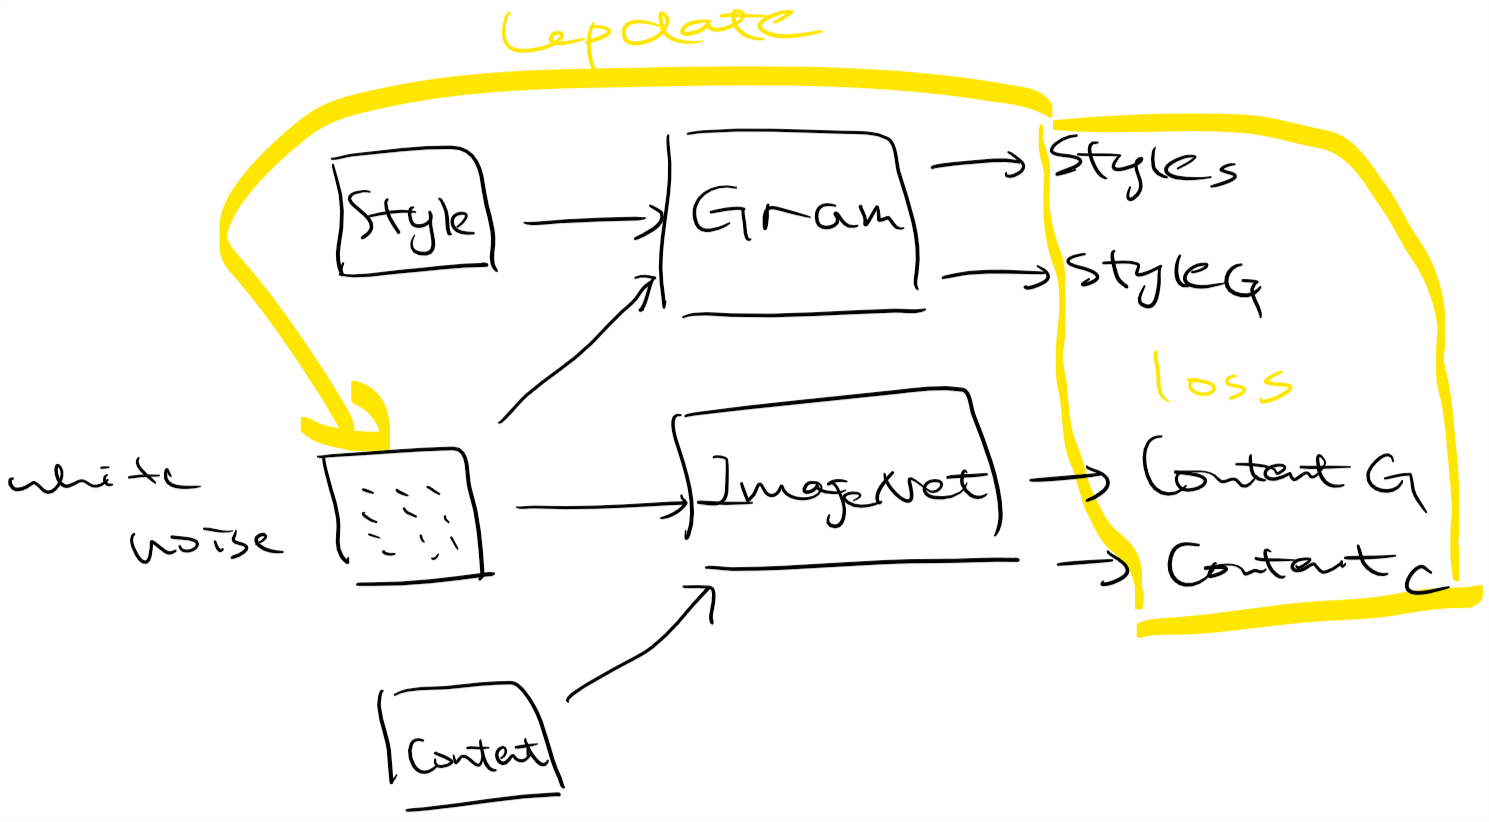 update
Style
Gram
Styles
StyleG
loss
white
noise
ImageNet
Content G
Content C
Content